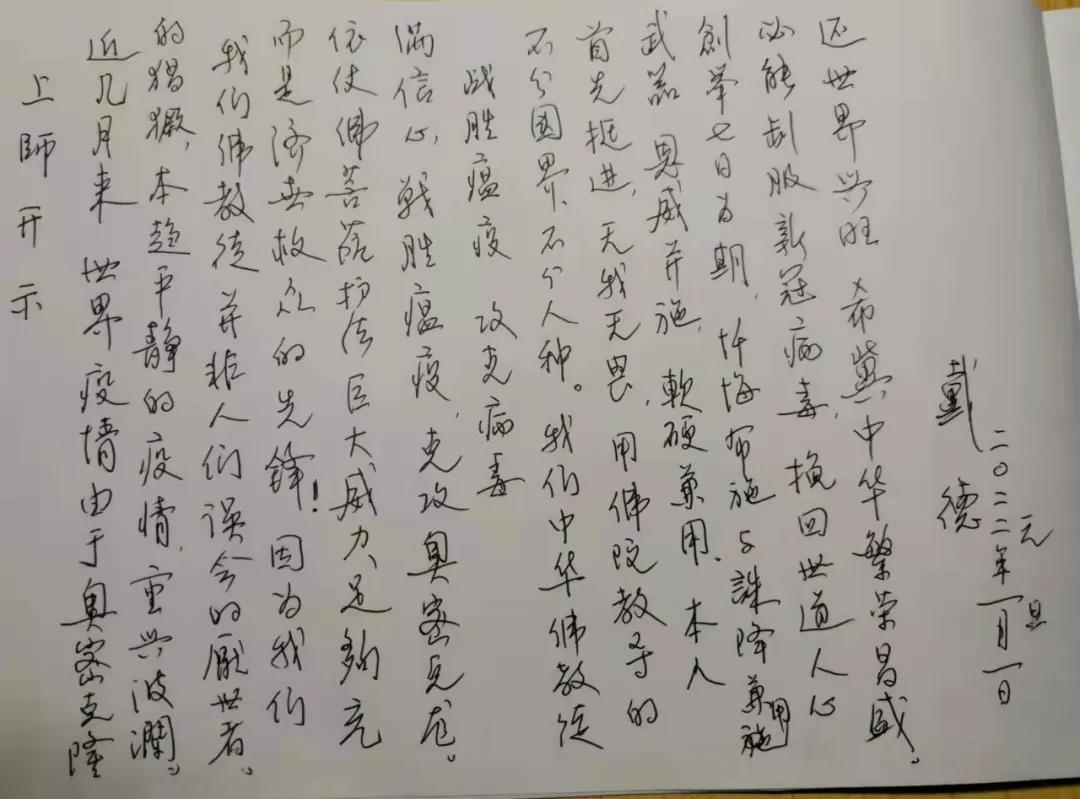 上師开示
近几月来 世界疫情由于奥密克隆
的猖獗，本趋平静的疫情，重兴波瀾。
我们佛教徒并非人们误会的厭世者。
而是济世救众的先鋒！因为我们
依仗佛菩萨护法巨大威力，足夠充
满信心，戰胜瘟疫，克攻奥密克戎。
战胜瘟疫 攻克病毒
不分国界、不分人种。我们中华佛教徒
首先挺进，无我无畏，用佛陀教导的
武器 恩威并施，軟硬兼用、本人
創举七日为期，忏悔布施与誅降兼施用
必能制服新冠病毒，挽回世道人心
还世界兴旺 希冀中华繁荣昌盛。
戴德
二〇二二年元旦
一月一日